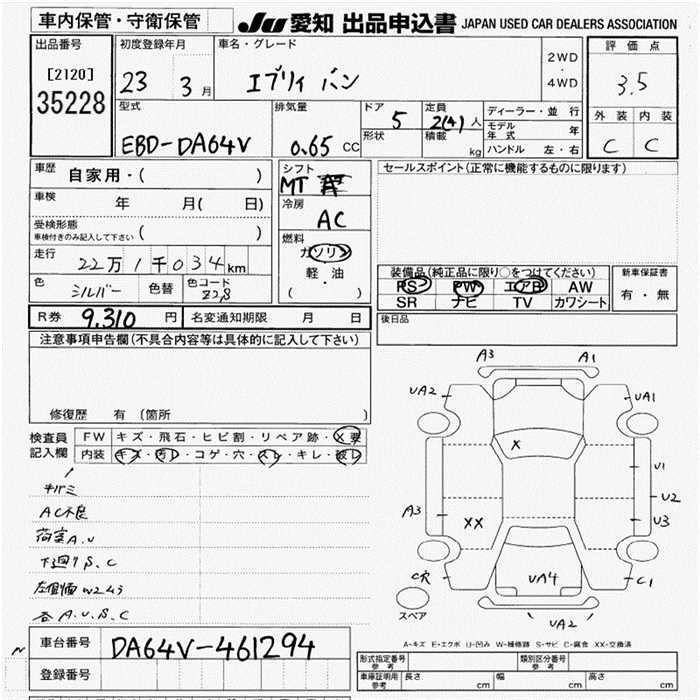 車内保管・守衛保管
JU 愛知 出品申込書 JAPAN USED CAR DEALERS ASSOCIATION
出品番号
[2120]
35228
初度登録年月
23 3月
車名・グレード
エブリィ バン
2WD
・
4WD
評価点
3.5
外装 内装
C C
型式
EBD-DA64V
排気量
0.65 CC
ドア
5
形状
定員
2(4)人
積載
kg
ディーラー・並行
モデル年式 年
ハンドル 左・右
車歴 自家用・( )
車検 年 月( 日)
受検形態
車検付きのみ記入して下さい ( )
走行
22万1千034km
色
シルバー
色替
色コード
Z2S
シフト
MT
冷房
AC
燃料
ガソリン
軽・油
( )
セールスポイント(正常に機能するものに限ります)
装備品(純正品に限り○をつけてください)
PS PW エアB AW
SR ナビ TV カワシート
新車保証書
有・無
R券 9,310円
名変通知期限 月 日
後日品
注意事項申告欄(不具合内容等は具体的に記入して下さい)
修復歴 有 (箇所 )
検査員
記入欄
FW キズ・飛石・ヒビ割・リペア跡・X要
内装 キズ・汚レ・コゲ・穴・スレ・キレ・破レ
AC不良
荷室A.U
下廻りS.C
各A.U.S.C
A3
A1
UA2
UA1
X
U1
U2
U3
A3
XX
C穴
UA4
C1
UA2
スペア
A-キズ E-エクボ U-凹み W-補修跡 S-サビ C-腐食 XX-交換済
車台番号 DA64V-461294
登録番号
形式指定番号
参考
類別区分番号
参考
車庫証明用
参考
長さ cm
幅 cm
高さ cm